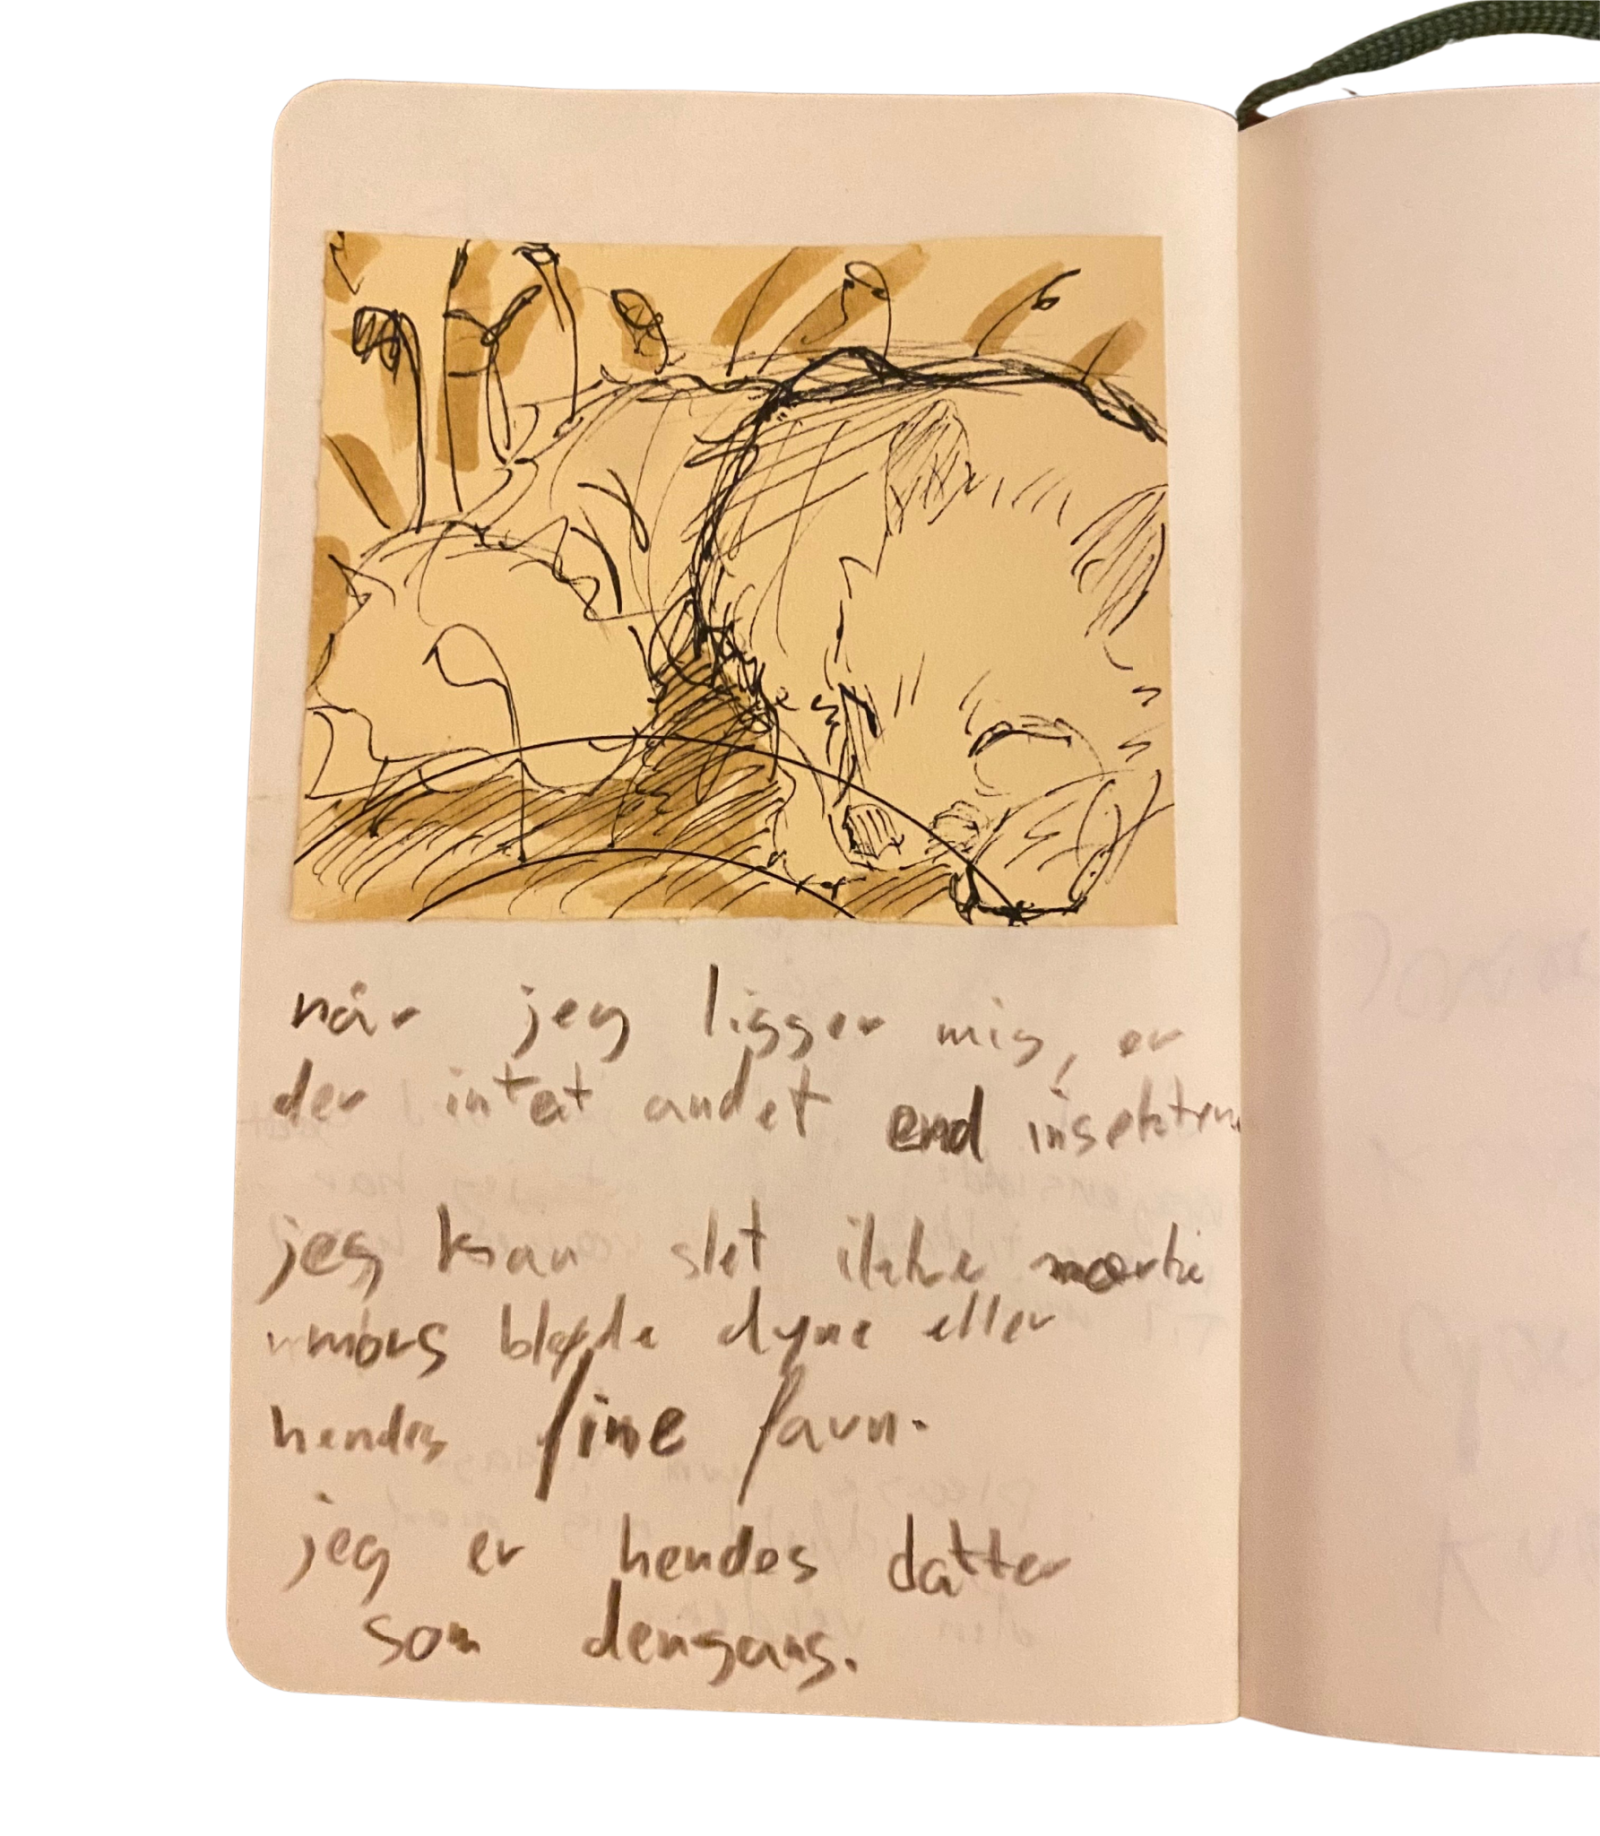 når jeg ligger mig, er
der intet andet end insekterne
jeg kan slet ikke mærke
mors bløde dyne eller
hendes fine favn.
jeg er hendes datter
som dengang.